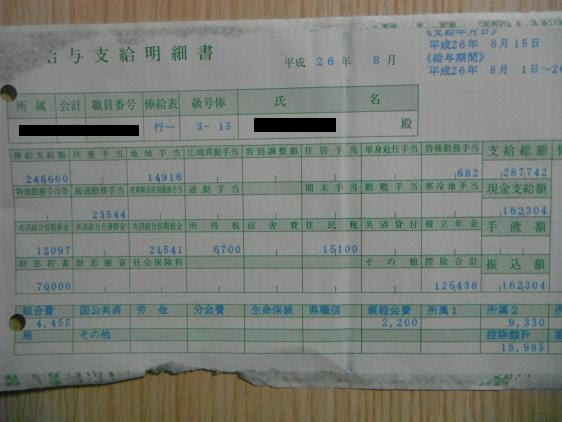 給与支給明細書
平成 26 年 8 月
《支給年月日》
平成26年 8月15日
《給与期間》
平成26年 8月 1日~26
所属 会計 職員番号 俸給表 級号俸 氏 名
行一 3-15 殿
俸給支給額 扶養手当 地域手当 広域異動手当 特別調整額 住居手当 単身赴任手当 特殊勤務手当 支給総額
248600 14916 682 287,742
特地勤務手当等 超過勤務手当 管理職員特別勤務手当 通勤手当 期末手当 勤勉手当 寒冷地手当 現金支給額
23544 162304
共済組合短期掛金 共済組合介護掛金 共済組合長期掛金 所得税 宿舎費 住民税 共済貸付 積立年金 手渡額
12097 21,541 6700 15,100
財形貯蓄 財形融資 社会保険料 その他 控除合計 振込額
70,000 125438 162304
組合費 国公共済 労金 分会費 生命保険 県職信 親睦会費 所属1 所属2
4,455 2,200 9,330
局 その他 控除額計
15,985